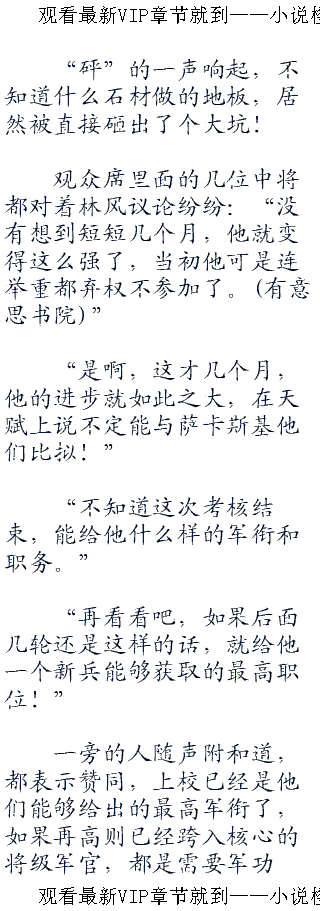 观看最新VIP章节就到——小说
“砰”的一声响起，不
知道什么石材做的地板，居
然被直接砸出了个大坑！
观众席里面的几位中将
都对着林风议论纷纷：“没
有想到短短几个月，他就变
得这么强了，当初他可是连
举重都弃权不参加了。(有意
思书院)”
“是啊，这才几个月，
他的进步就如此之大，在天
赋上说不定能与萨卡斯基他
们比拟！”
“不知道这次考核结
束，能给他什么样的军衔和
职务。”
“再看看吧，如果后面
几轮还是这样的话，就给他
一个新兵能够获取的最高职
位！”
一旁的人随声附和道，
都表示赞同，上校已经是他
们能够给出的最高军衔了，
如果再高则已经跨入核心的
将级军官，都是需要军功
观看最新VIP章节就到——小说